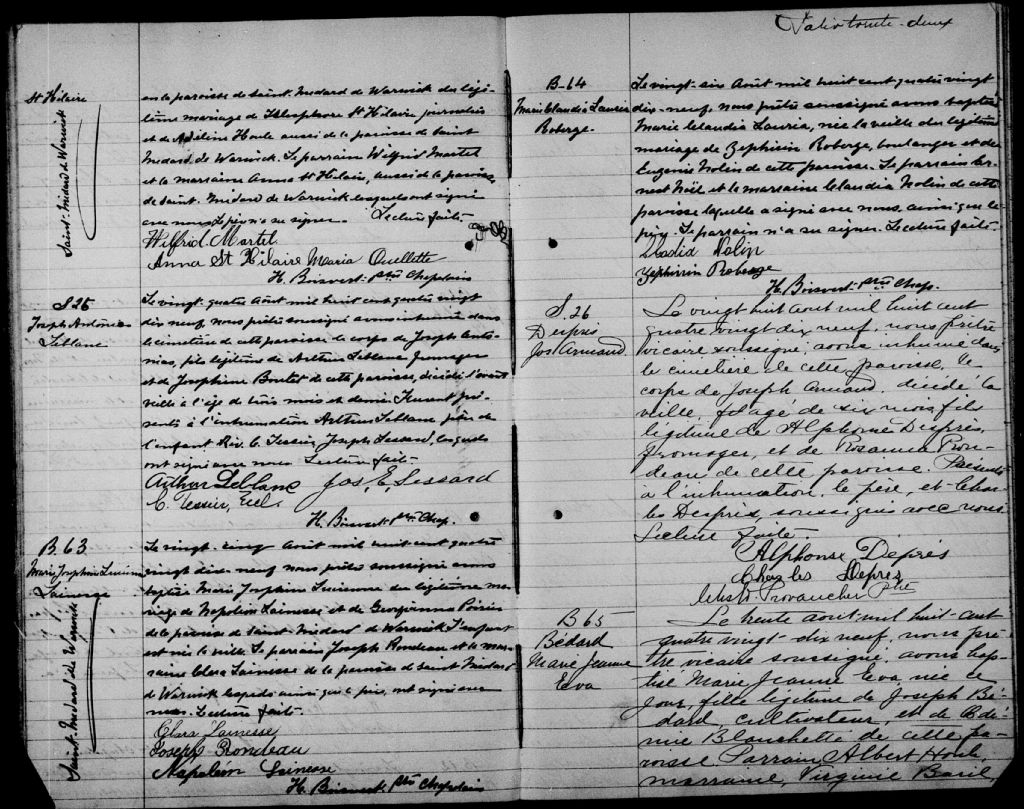 St Hilaire
Saint-Médard de Warwick
en la paroisse de Saint-Médard de Warwick du légi-
time mariage de Télesphore St Hilaire journalier
et de Adéline Houle aussi de la paroisse de Saint
Médard de Warwick. Le parrain Wilfrid Martel
et la marraine Anna St Hilaire, aussi de la paroisse
de Saint-Médard de Warwick lesquels ont signé
avec nous. Le père n'a su signer. Lecture faite
Wilfrid Martel
Anna St Hilaire Maria Ouellette
H. Boisvert ptre Chapelain
S 25
Joseph Antonias
Leblanc
Le vingt-quatre Août mil huit cent quatre vingt
dix neuf, nous prêtre soussigné avons inhumé dans
le cimetière de cette paroisse le corps de Joseph Anto-
nias, fils légitime de Arthur Leblanc fromager
et de Joséphine Boutet de cette paroisse, décédé l'avant
veille à l'âge de trois mois et demi. Furent pré-
sents à l'inhumation Arthur Leblanc père de
l'enfant Rév. C. Tessier, Joseph Lessard, lesquels
ont signé avec nous Lecture faite
Arthur Leblanc Jos. E. Lessard
C. Tessier, Eccl.
H. Boisvert ptre Chap.
B. 63
Marie Joséphine
Lainesse
Saint-Médard de Warwick
Le vingt-cinq Août mil huit cent quatre
vingt dix-neuf nous prêtre soussigné avons
baptisé Marie Joséphine du légitime ma-
riage de Napoléon Lainesse et de Georgianna Poirier
de la paroisse de Saint-Médard de Warwick. L'enfant
est née la veille. Le parrain Joseph Rondeau et la mar-
raine Clara Lainesse de la paroisse de Saint Médard
de Warwick lesquels ainsi que le père, ont signé avec
nous. Lecture faite.
Clara Lainesse
Joseph Rondeau
Napoléon Lainesse
H. Boisvert ptre Chapelain
Folio trente-deux
B-64
Marie Claudia Lauria
Roberge.
Le vingt-six Août mil huit cent quatre vingt
dix-neuf, nous prêtre soussigné avons baptisé
Marie Claudia Lauria, née la veille du légitime
mariage de Zéphirin Roberge, boulanger et de
Eugénie Nolin de cette paroisse. Le parrain Er-
nest Noël et la marraine Claudia Nolin de cette
paroisse laquelle a signé avec nous, ainsi que le
père. Le parrain n'a su signer. Lecture faite.
Claudia Nolin
Zéphirin Roberge
H. Boisvert ptre Chap.
S. 26
Després
Jos Armand.
Le vingt huit aout mil huit cent
quatre vingt dix neuf, nous prêtre
vicaire soussigné, avons inhumé dans
le cimetière de cette paroisse, le
corps de Joseph Armand, décédé la
veille, âgé de six mois, fils
légitime de Alphonse Després,
fromager, et de Rosanna Ron-
deau de cette paroisse. Présents
à l'inhumation, le père, et Char-
les Després, soussignés avec nous.
Lecture faite
Alphonse Deprés
Charles Deprés
Provancher Ptre
B 65
Bédard
Marie Jeanne
Eva
Le trente aout mil huit-cent
quatre vingt dix neuf, nous prê-
tre vicaire soussigné, avons bap-
tisé Marie Jeanne Eva, née ce
jour, fille légitime de Joseph Bé-
dard, cultivateur, et de
Blanchette de cette pa-
roisse Parrain Albert Houle,
marraine, Virginie Baril,